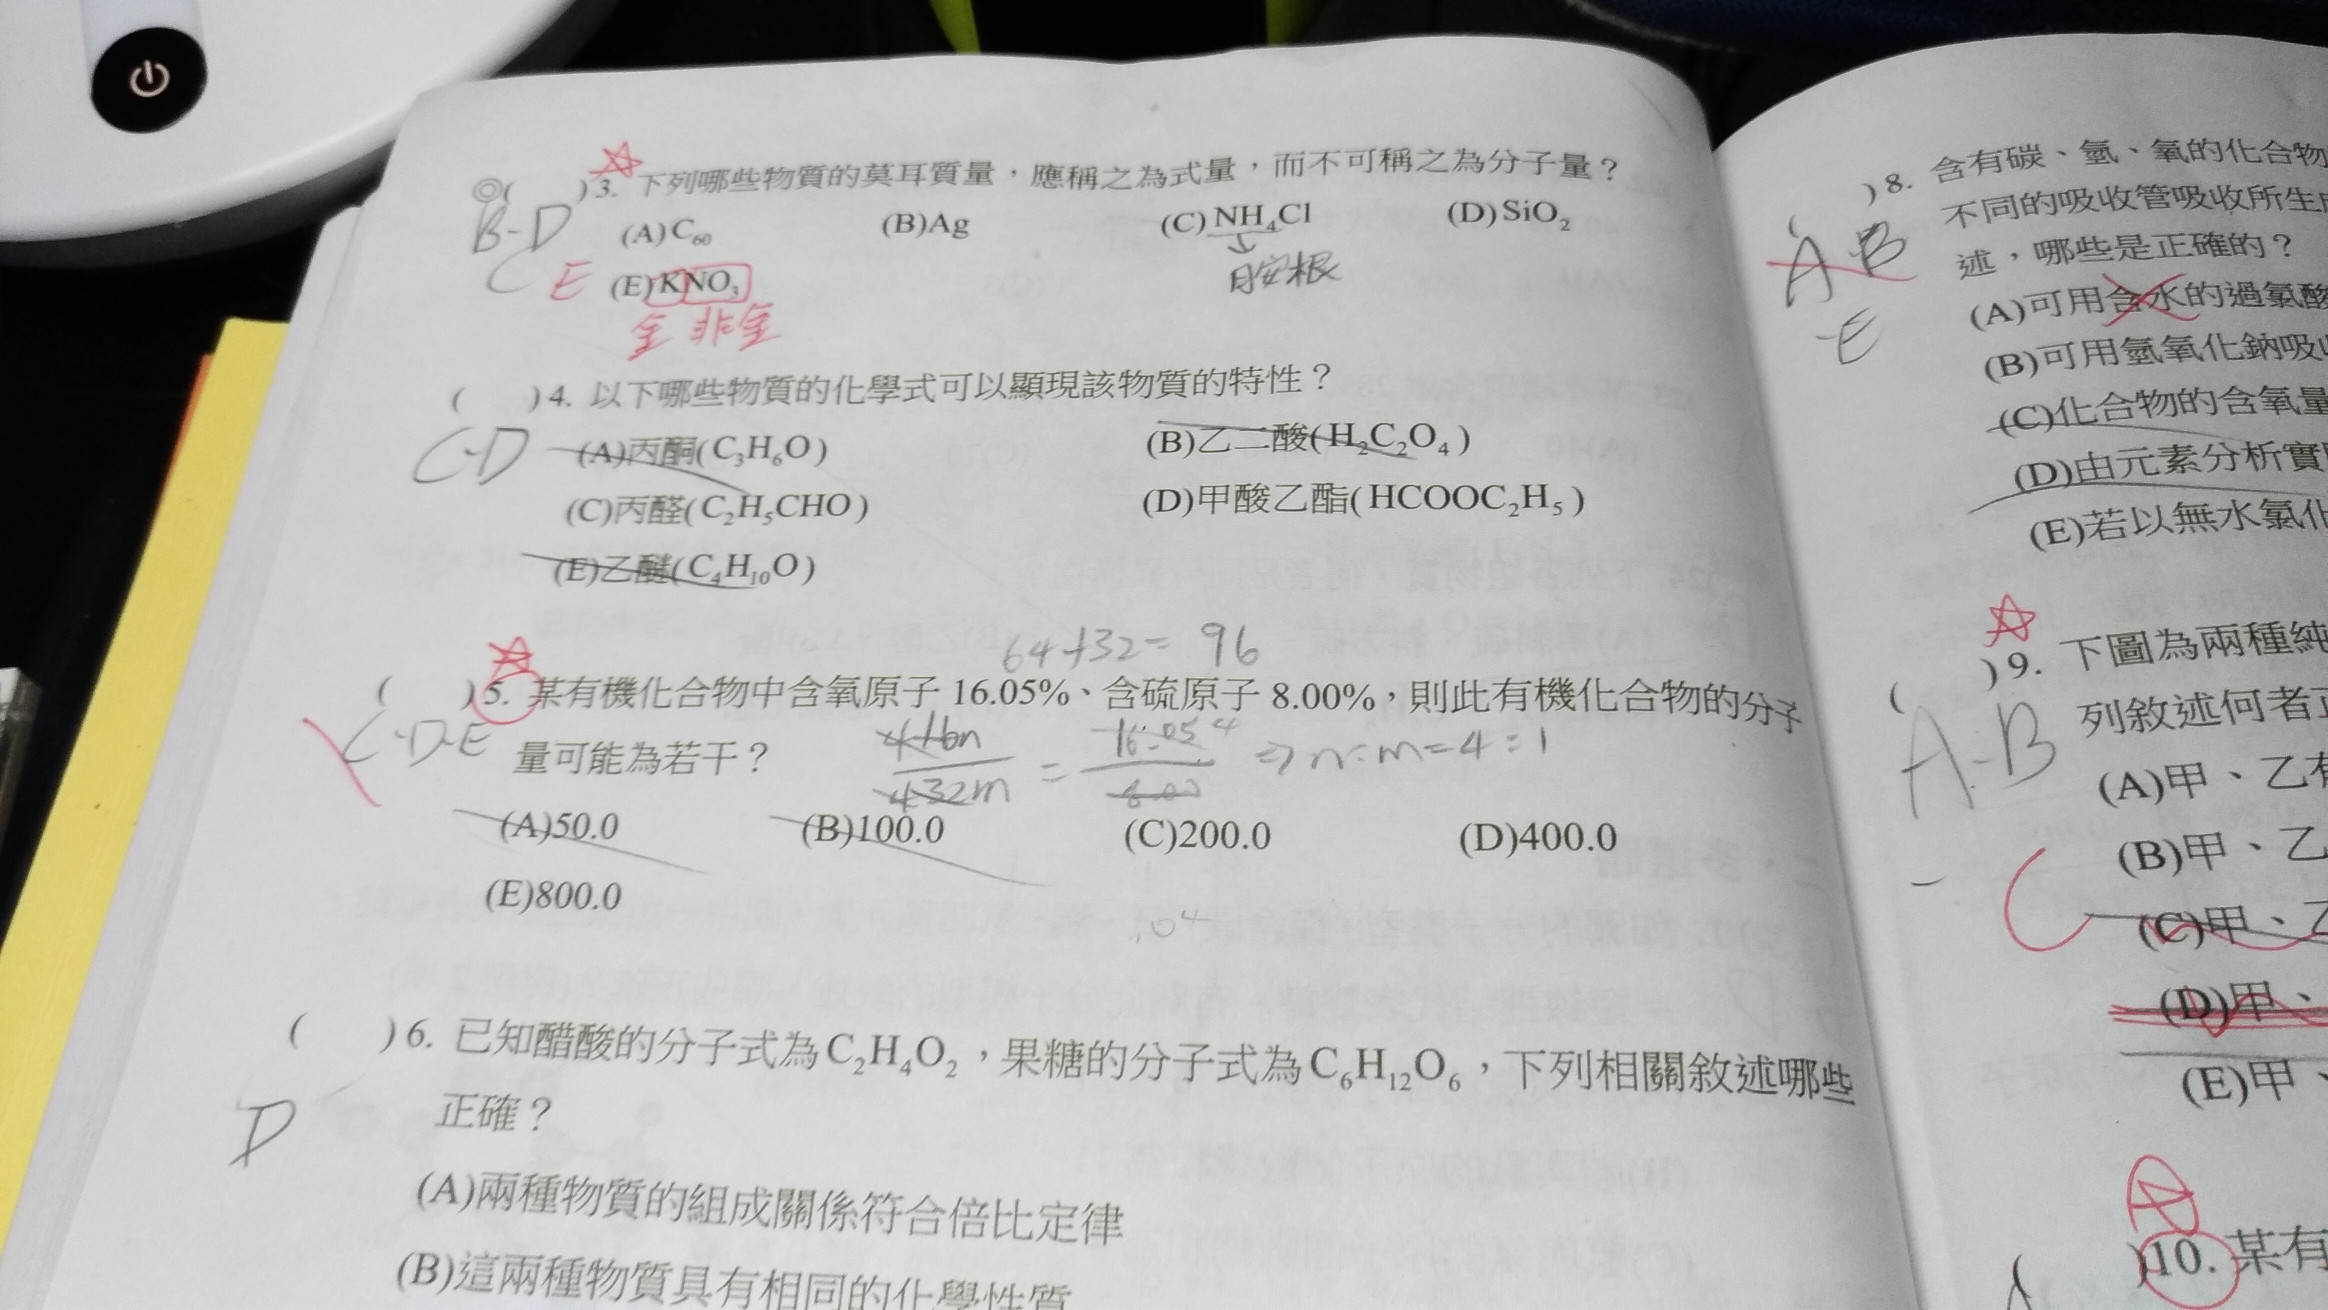 ◎( )3. 下列哪些物質的莫耳質量，應稱之為式量，而不可稱之為分子量？
B-D
C E
(A)C₆₀ (B)Ag (C)NH₄Cl (D)SiO₂
胺根
(E)KNO₃
金 非金
( )4. 以下哪些物質的化學式可以顯現該物質的特性？
C-D
(A)丙酮(C₃H₆O) (B)乙二酸(H₂C₂O₄)
(C)丙醛(C₂H₅CHO) (D)甲酸乙酯(HCOOC₂H₅)
(E)乙醚(C₄H₁₀O)
64+32=96
( )5. 某有機化合物中含氧原子 16.05%、含硫原子 8.00%，則此有機化合物的分子
C-D-E
量可能為若干？
16n/32m = 16.05/8.00 ⇒ n:m=4:1
(A)50.0 (B)100.0 (C)200.0 (D)400.0
(E)800.0
.04
( )6. 已知醋酸的分子式為C₂H₄O₂，果糖的分子式為C₆H₁₂O₆，下列相關敘述哪些
D
正確？
(A)兩種物質的組成關係符合倍比定律
(B)這兩種物質具有相同的化學性質
( )8. 含有碳、氫、氧的化合物
不同的吸收管吸收所生
A-B
述，哪些是正確的？
E
(A)可用含水的過氯酸
(B)可用氫氧化鈉吸
(C)化合物的含氧量
(D)由元素分析實
(E)若以無水氯化
( )9. 下圖為兩種純
列敘述何者正
A-B
(A)甲、乙有
(B)甲、乙
C
(C)甲、乙
(D)甲、
(E)甲、
( )10. 某有